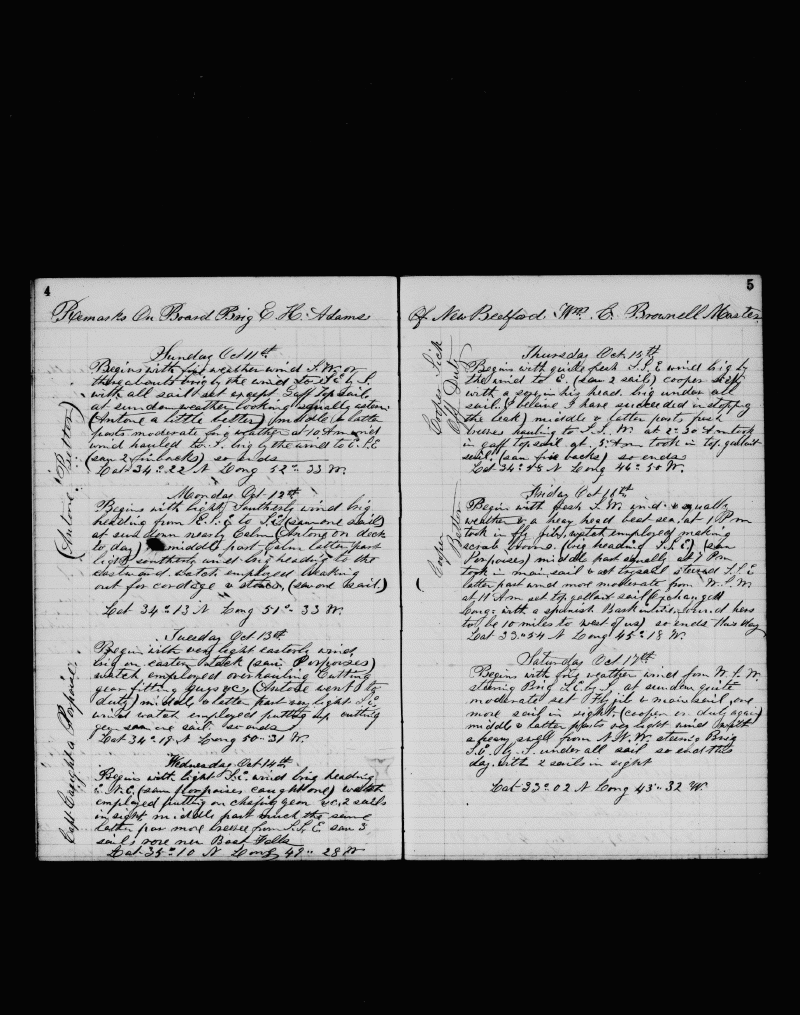 4
Remarks On Board Brig E. H. Adams
(Antone Better)
Capt Caught a Porpoise
Sunday Oct 11th
Begins with fair weather wind S.W. or
thereabouts brig by the wind to S.E. by S.
with all sail set except Gaff Topsail
at sundown weather looking squally astern
(Antone a little better) middle & latter
parts moderate brig weather at 10 Am wind
wind hauled to S. brig by the wind to E.S.E
(saw 2 finback) so ends
Lat 34° 22 N Long 52° 33 W.
Monday Oct 12th
Begins with light Southerly wind brig
heading from E. to S.E. (saw one sail)
at sun down nearly Calm (Antone on deck
to day) middle part Calm latter part
light southerly wind brig heading to the
eastward watch employed breaking
out for cordage & (saw one sail)
Lat 34° 13 N Long 51° 33 W.
Tuesday Oct 13th
Begin with very light easterly wind
brig on eastern tack (saw Porpoises)
watch employed overhauling Cutting
gear fitting guys &c, (Antone went to
duty) middle & latter part very light S.E.
wind watch employed putting up cutting
gear saw one sail so ends
Lat 34° 19 N Long 50° 31 W.
Wednesday Oct 14th
Begins with light S.E. wind brig heading
E.N.E. (saw porpoises caught one) watch
employed putting on chafing gear &c, 2 sails
in sight middle part much the same
latter par more breeze from S.S.E. saw 3
sails
Lat 35° 10 N Long 49° 28 W
5
Of New Bedford Wm. C. Brownell Master
Cooper Sick
Off Duty
(Cooper
Better
Thursday Oct 15th
Begins with quite fresh S.S.E wind brig by
the wind to E. (saw 2 sails) cooper sick
with a sore in his head. brig under all
sail. (I believe I have succeeded in stopping
the leak) middle & latter parts fresh
breeze hauling to S.S.W. at 2.30 Am took
in gaff topsail at 5 Am took in top gallant
sail. (saw fin backs) so ends
Lat 34° 48 N Long 46° 50 W.
Friday Oct 16th
Begin with fresh S.W. wind & squally
weather & a heavy head beat sea. at 1 P m
took in fly jib, watch employed making
scrub brooms. (brig heading S.S.E.) (saw
Porpoises) middle part squally at 7 Pm
took in main sail & set trysail steered S.S.E
latter part wind more moderate from W.S.W.
at 11 Am set top gellant sail (exchanged
Long. with a spanish Bark bound here
to be 10 miles to west of us) so ends this day
Lat 33° 54 N Long 45° 18 W.
Saturday Oct 17th
Begins with fog weather wind from W.S.W.
stering Brig S.E. by S. at sundown quite
moderate set fly jib & main sail, one
more sail in sight. (cooper on duty again)
middle & latter parts very light wind with
a heavy swell from N.N.W. stering Brig
S.E. by S. under all sail so end this
day with 2 sails in sight
Lat 33° 02 N Long 43° 32 W.